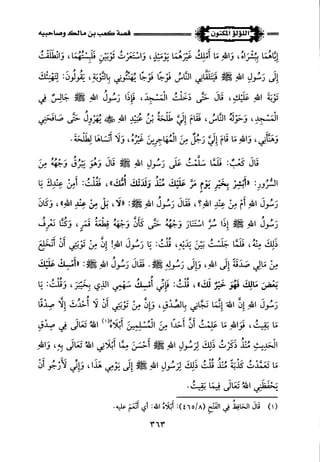 اللؤلؤ المكنون
قصة كعب بن مالك وصاحبيه
إِيَّاهُمَا بِبُشْرَاهُ، وَاللهِ مَا أَمْلِكُ غَيْرَهُمَا يَوْمَئِذٍ، وَاسْتَعَرْتُ ثَوْبَيْنِ فَلَبِسْتُهُمَا، وَانْطَلَقْتُ
إِلَى رَسُولِ اللهِ ﷺ فَيَتَلَقَّانِي النَّاسُ فَوْجًا فَوْجًا يُهَنُّونِي بِالتَّوْبَةِ، يَقُولُونَ: لِتَهْنِكَ
تَوْبَةُ اللهِ عَلَيْكَ، قَالَ حَتَّى دَخَلْتُ الْمَسْجِدَ، فَإِذَا رَسُولُ اللهِ ﷺ جَالِسٌ فِي
الْمَسْجِدِ، وَحَوْلَهُ النَّاسُ، فَقَامَ إِلَيَّ طَلْحَةُ بْنُ عُبَيْدِ اللهِ ﷺ يُهَرْوِلُ حَتَّى صَافَحَنِي
وَهَنَّأَنِي، وَاللهِ مَا قَامَ إِلَيَّ رَجُلٌ مِنَ الْمُهَاجِرِينَ غَيْرُهُ، وَلَا أَنْسَاهَا لِطَلْحَةَ.
قَالَ كَعْبٌ: فَلَمَّا سَلَّمْتُ عَلَى رَسُولِ اللهِ ﷺ قَالَ وَهُوَ يَبْرُقُ وَجْهُهُ مِنَ
السُّرُورِ: «أَبْشِرْ بِخَيْرِ يَوْمٍ مَرَّ عَلَيْكَ مُنْذُ وَلَدَتْكَ أُمُّكَ»، فَقُلْتُ: أَمِنْ عِنْدِكَ يَا
رَسُولَ اللهِ أَمْ مِنْ عِنْدِ اللهِ؟، قَالَ رَسُولُ اللهِ ﷺ: «لَا، بَلْ مِنْ عِنْدِ اللهِ»، وَكَانَ
رَسُولُ اللهِ ﷺ إِذَا سُرَّ اسْتَنَارَ وَجْهُهُ حَتَّى كَأَنَّ وَجْهَهُ قِطْعَةُ قَمَرٍ، وَكُنَّا نَعْرِفُ
ذَلِكَ مِنْهُ، فَلَمَّا جَلَسْتُ بَيْنَ يَدَيْهِ، قُلْتُ: يَا رَسُولَ اللهِ! إِنَّ مِنْ تَوْبَتِي أَنْ أَنْخَلِعَ
مِنْ مَالِي صَدَقَةً إِلَى اللهِ، وَإِلَى رَسُولِهِ ﷺ. فَقَالَ رَسُولُ اللهِ ﷺ: «أَمْسِكْ عَلَيْكَ
بَعْضَ مَالِكَ فَهُوَ خَيْرٌ لَكَ»، قُلْتُ: فَإِنِّي أُمْسِكُ سَهْمِي الَّذِي بِخَيْبَرَ، وَقُلْتُ: يَا
رَسُولَ اللهِ إِنَّ اللهَ إِنَّمَا نَجَّانِي بِالصِّدْقِ، وَإِنَّ مِنْ تَوْبَتِي أَنْ لَا أُحَدِّثَ إِلَّا صِدْقًا
مَا بَقِيتُ، فَوَاللهِ مَا عَلِمْتُ أَنَّ أَحَدًا مِنَ الْمُسْلِمِينَ أَبْلَاهُ(١) اللهُ تَعَالَى فِي صِدْقِ
الْحَدِيثِ مُنْذُ ذَكَرْتُ ذَلِكَ لِرَسُولِ اللهِ ﷺ أَحْسَنَ مِمَّا أَبْلَانِي اللهُ تَعَالَى بِهِ، وَاللهِ
مَا تَعَمَّدْتُ كَذْبَةً مُنْذُ قُلْتُ ذَلِكَ لِرَسُولِ اللهِ ﷺ إِلَى يَوْمِي هَذَا، وَإِنِّي لَأَرْجُو أَنْ
يَحْفَظَنِي اللهُ تَعَالَى فِيمَا بَقِيتُ.
(١) قال الحافظ في الفتح (٤٦٥/٨): أبلاهُ الله: أي أنعَمَ عليه.
٣٦٣